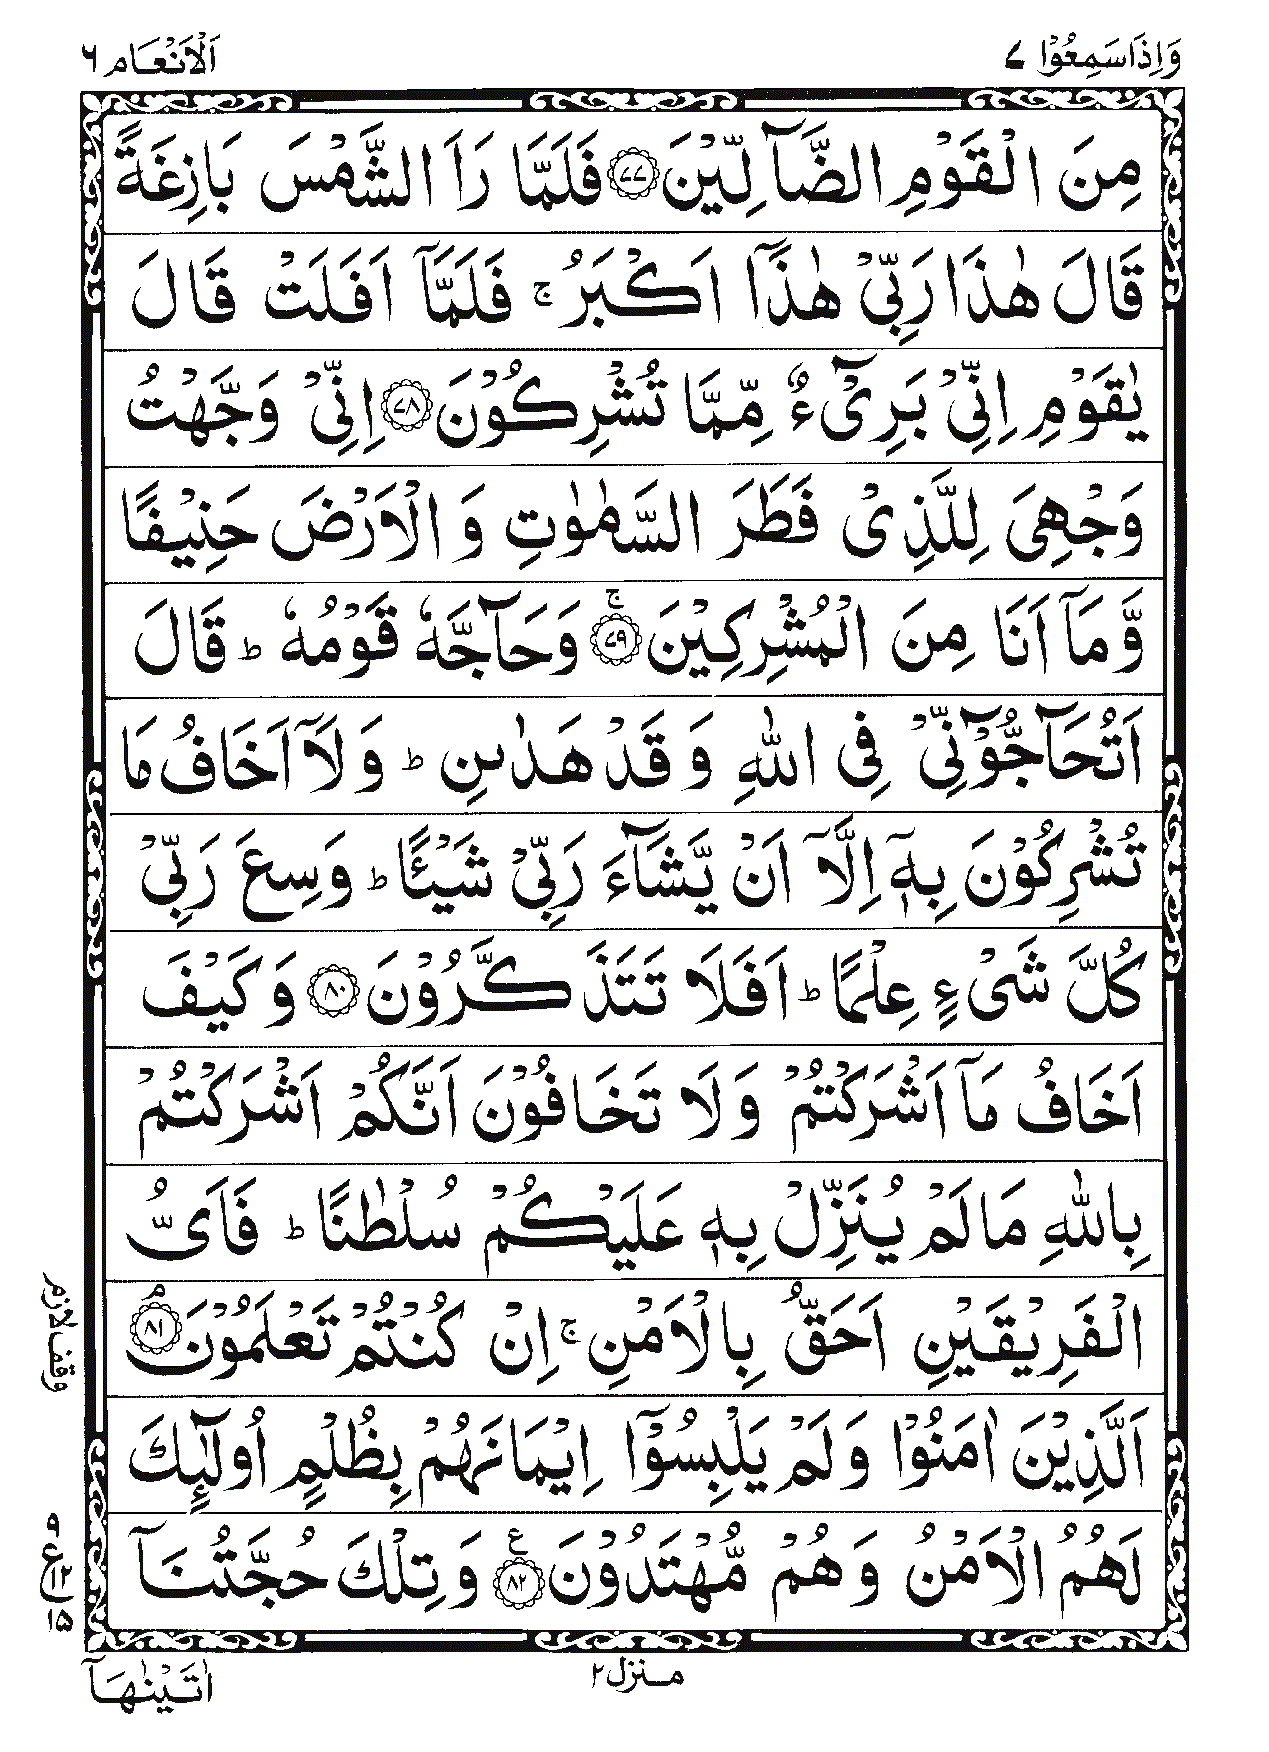 وَاِذَاسَمِعُوْا ۷
اَلْاَنْعَام ۶
مِنَ الْقَوْمِ الضَّآلِّيْنَ ﴿۷۷﴾ فَلَمَّا رَاَ الشَّمْسَ بَازِغَةً
قَالَ هٰذَا رَبِّيْ هٰذَاۤ اَكْبَرُ ۚ فَلَمَّاۤ اَفَلَتْ قَالَ
يٰقَوْمِ اِنِّيْ بَرِيْٓءٌ مِّمَّا تُشْرِكُوْنَ ﴿۷۸﴾ اِنِّيْ وَجَّهْتُ
وَجْهِيَ لِلَّذِيْ فَطَرَ السَّمٰوٰتِ وَ الْاَرْضَ حَنِيْفًا
وَّمَاۤ اَنَا مِنَ الْمُشْرِكِيْنَ ۚ﴿۷۹﴾ وَحَآجَّهٗ قَوْمُهٗ ؕ قَالَ
اَتُحَآجُّوْٓنِّيْ فِي اللّٰهِ وَ قَدْ هَدٰىنِ ؕ وَلَاۤ اَخَافُ مَا
تُشْرِكُوْنَ بِهٖۤ اِلَّاۤ اَنْ يَّشَآءَ رَبِّيْ شَيْـًٔا ؕ وَسِعَ رَبِّيْ
كُلَّ شَيْءٍ عِلْمًا ؕ اَفَلَا تَتَذَكَّرُوْنَ ﴿۸۰﴾ وَكَيْفَ
اَخَافُ مَاۤ اَشْرَكْتُمْ وَلَا تَخَافُوْنَ اَنَّكُمْ اَشْرَكْتُمْ
بِاللّٰهِ مَا لَمْ يُنَزِّلْ بِهٖ عَلَيْكُمْ سُلْطٰنًا ؕ فَاَيُّ
الْفَرِيْقَيْنِ اَحَقُّ بِالْاَمْنِ ۚ اِنْ كُنْتُمْ تَعْلَمُوْنَ ۘ﴿۸۱﴾
وقف لازم
اَلَّذِيْنَ اٰمَنُوْا وَلَمْ يَلْبِسُوْۤا اِيْمَانَهُمْ بِظُلْمٍ اُولٰٓئِكَ
لَهُمُ الْاَمْنُ وَهُمْ مُّهْتَدُوْنَ ﴿۸۲﴾ع وَتِلْكَ حُجَّتُنَاۤ
۹
ع ۱۲
۱۵
منزل ۲
اٰتَيْنٰهَاۤ